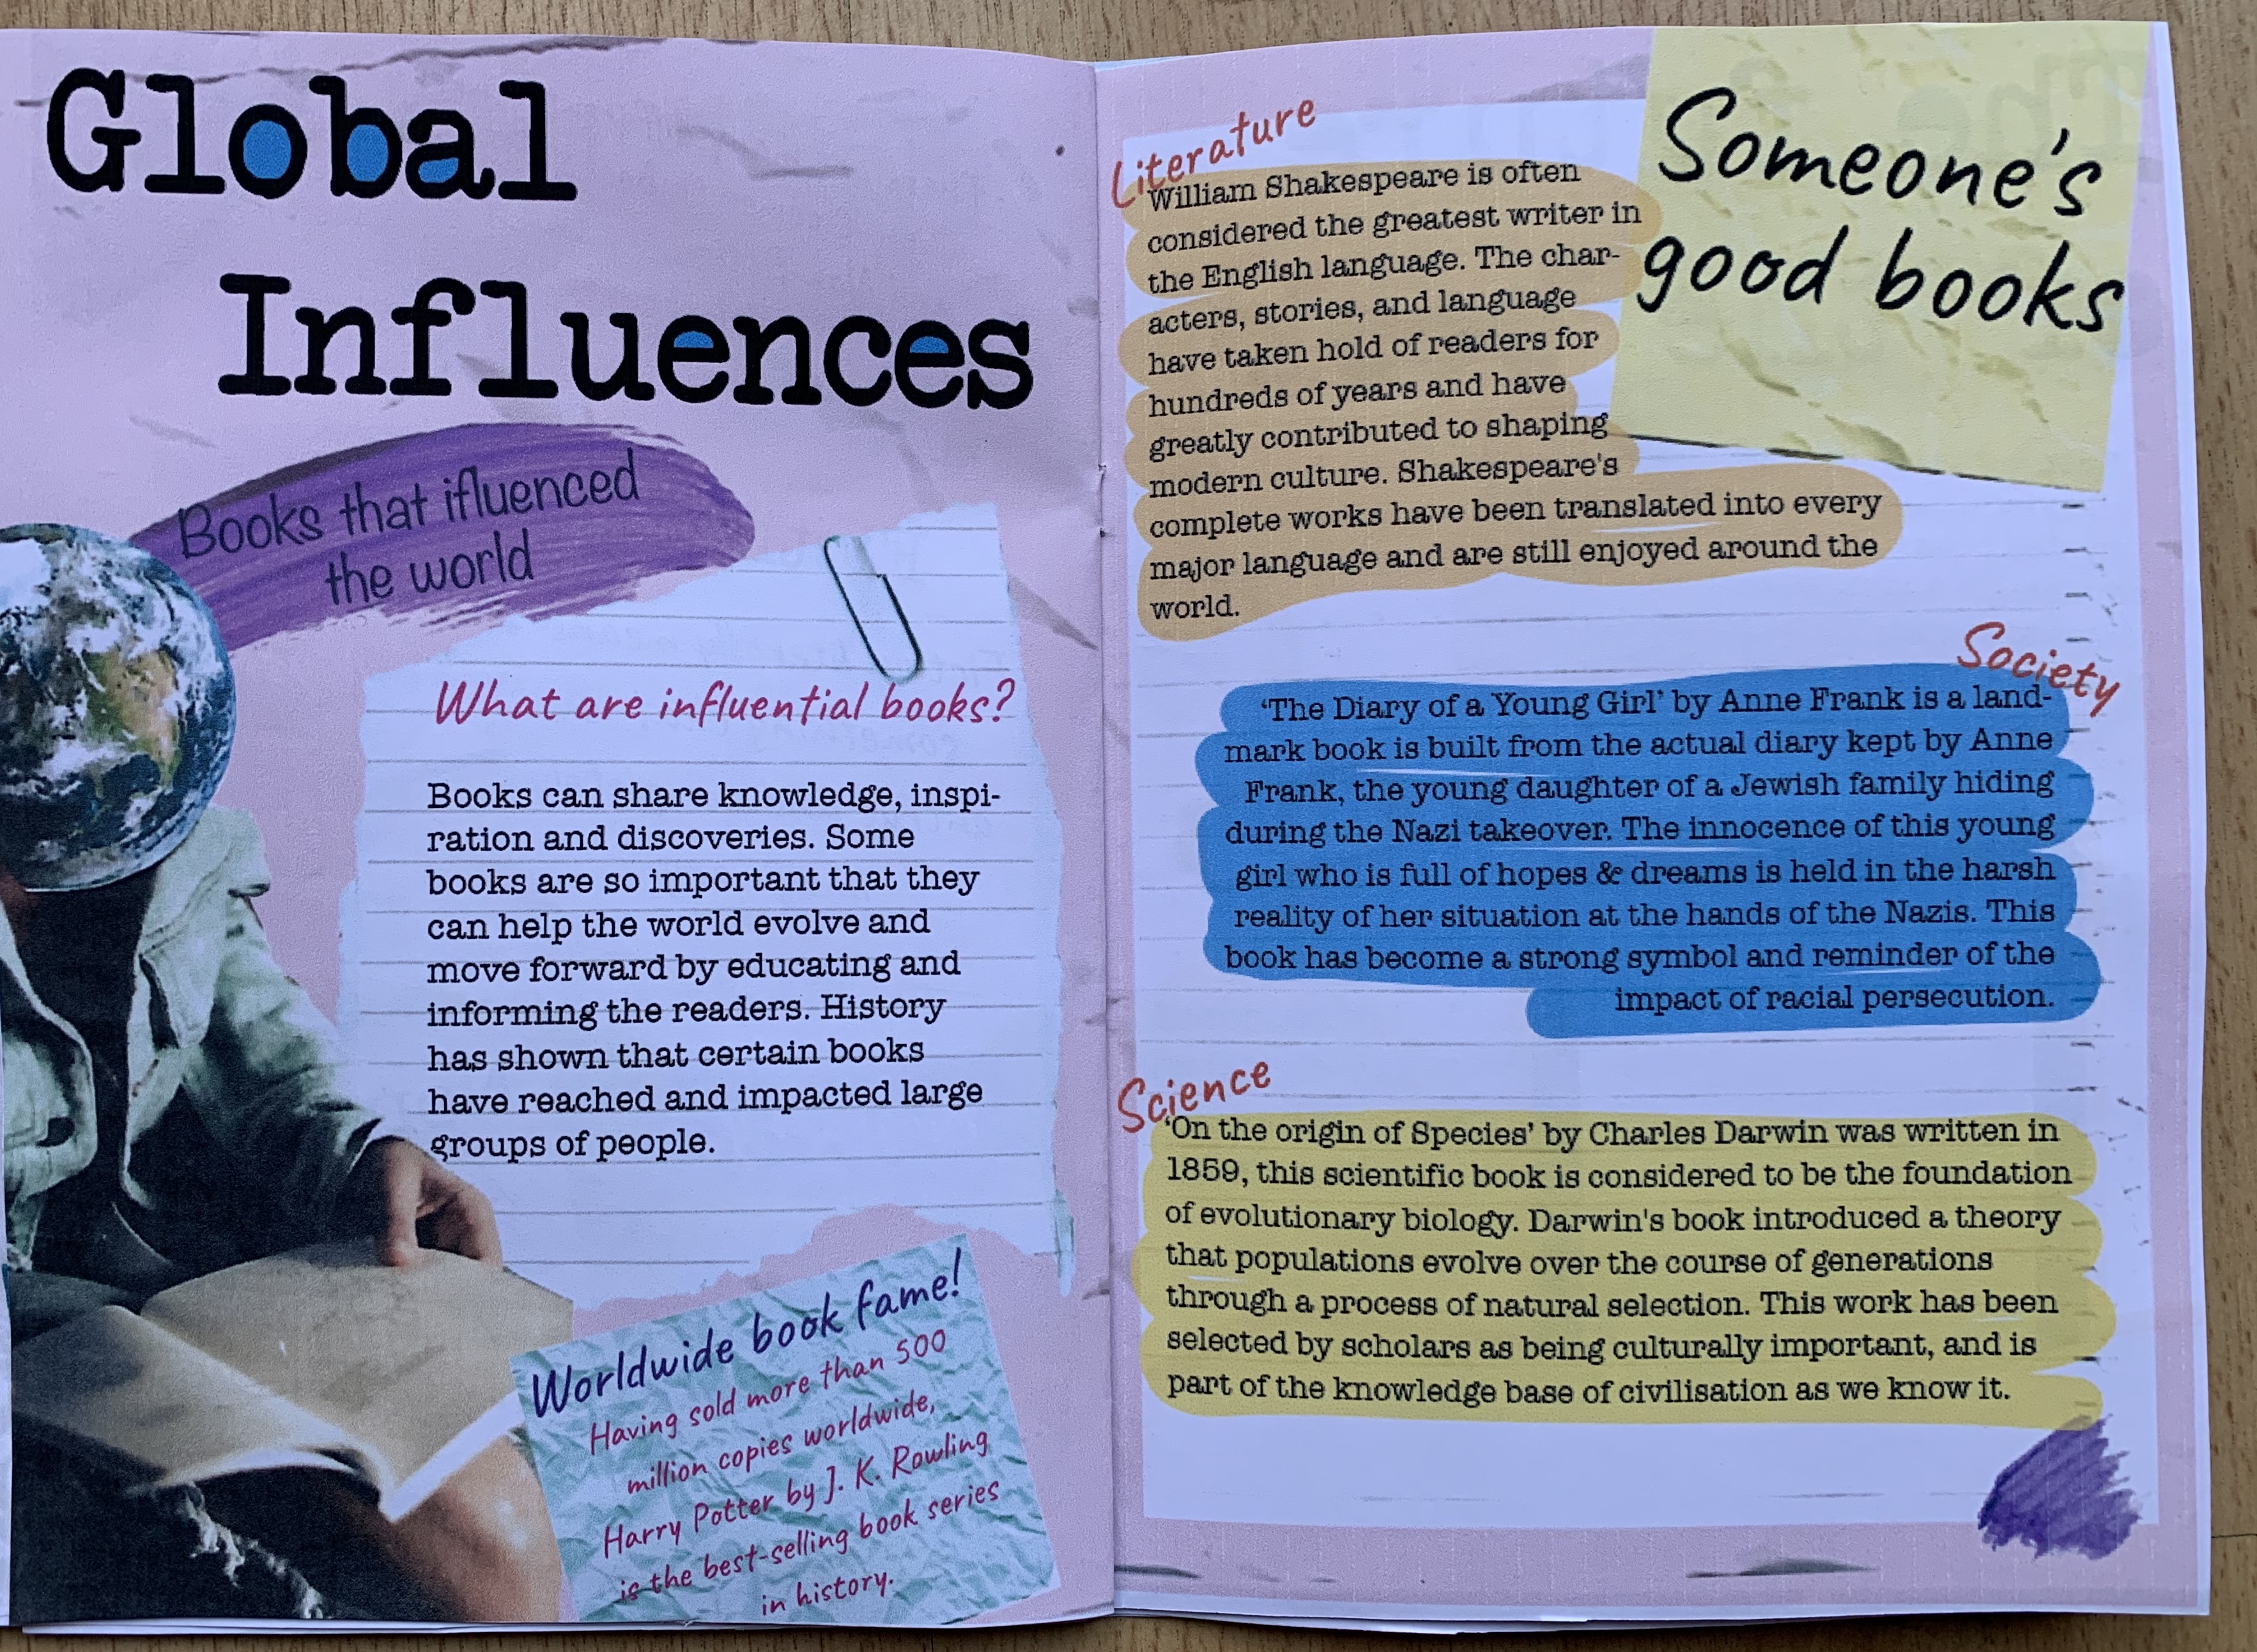 Global
Influences
Books that ifluenced
the world
What are influential books?
Books can share knowledge, inspi-
ration and discoveries. Some
books are so important that they
can help the world evolve and
move forward by educating and
informing the readers. History
has shown that certain books
have reached and impacted large
groups of people.
Worldwide book fame!
Having sold more than 500
million copies worldwide,
Harry Potter by J. K. Rowling
is the best-selling book series
in history.
Someone's
good books
Literature
William Shakespeare is often
considered the greatest writer in
the English language. The char-
acters, stories, and language
have taken hold of readers for
hundreds of years and have
greatly contributed to shaping
modern culture. Shakespeare's
complete works have been translated into every
major language and are still enjoyed around the
world.
Society
'The Diary of a Young Girl' by Anne Frank is a land-
mark book is built from the actual diary kept by Anne
Frank, the young daughter of a Jewish family hiding
during the Nazi takeover. The innocence of this young
girl who is full of hopes & dreams is held in the harsh
reality of her situation at the hands of the Nazis. This
book has become a strong symbol and reminder of the
impact of racial persecution.
Science
'On the origin of Species' by Charles Darwin was written in
1859, this scientific book is considered to be the foundation
of evolutionary biology. Darwin's book introduced a theory
that populations evolve over the course of generations
through a process of natural selection. This work has been
selected by scholars as being culturally important, and is
part of the knowledge base of civilisation as we know it.